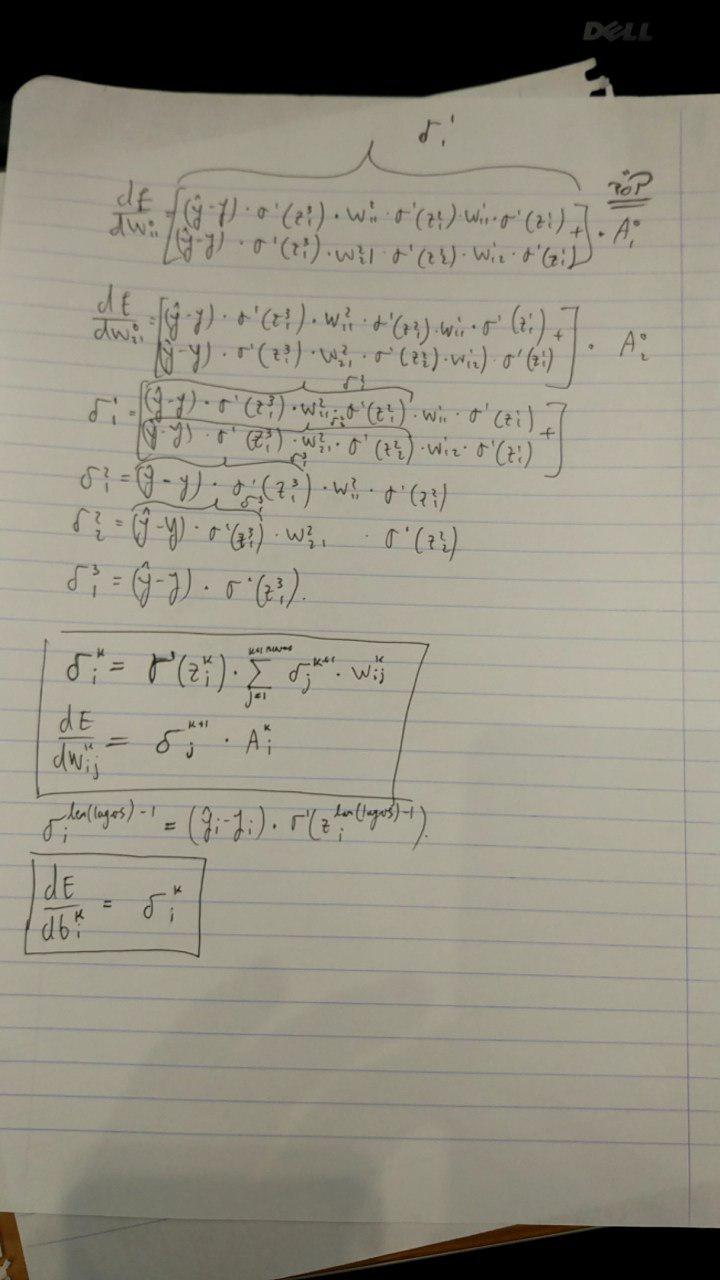 DELL
δ₁¹
dE/dw₁₁⁰ = [(ŷ-y) · σ'(z₁³) · w₁₁² · σ'(z₁²) · w₁₁¹ · σ'(z₁¹) +
(ŷ-y) · σ'(z₁³) · w₂₁² · σ'(z₂²) · w₁₂¹ · σ'(z₁¹)] · A₁⁰
dE/dw₂₁⁰ = [(ŷ-y) · σ'(z₁³) · w₁₁² · σ'(z₁²) · w₁₁¹ · σ'(z₁¹) +
(ŷ-y) · σ'(z₁³) · w₂₁² · σ'(z₂²) · w₁₂¹) · σ'(z₁¹)] · A₂⁰
δ₁¹ = [(ŷ-y) · σ'(z₁³) · w₁₁² · σ'(z₁²) · w₁₁¹ · σ'(z₁¹) +
(ŷ-y) · σ'(z₁³) · w₂₁² · σ'(z₂²) · w₁₂¹ · σ'(z₁¹)]
δ₁² = (ŷ-y) · σ'(z₁³) · w₁₁² · σ'(z₁²)
δ₂² = (ŷ-y) · σ'(z₁³) · w₂₁² · σ'(z₂²)
δ₁³ = (ŷ-y) · σ'(z₁³).
δᵢᵏ = σ'(zᵢᵏ) · Σ j=1 δⱼᵏ⁺¹ · wᵢⱼᵏ
dE/dwᵢⱼᵏ = δⱼᵏ⁺¹ · Aᵢᵏ
δᵢ^len(layers)-1 = (ŷᵢ-yᵢ) · σ'(zᵢ^len(layers)-1).
dE/dbᵢᵏ = δᵢᵏ